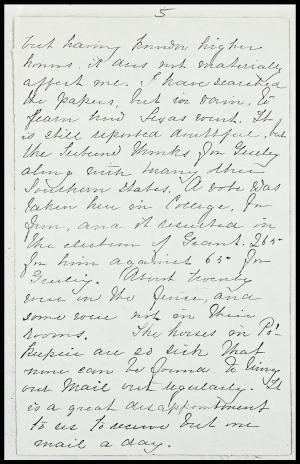 5
but having kinder higher
hours, it does not materially
affect me. I have searched
the papers, but in vain, to
learn how Texas went. It
is still reported doubtful, but
the Tribune thinks for Greeley
along with many other
Southern States. A vote was
taken here in College, for
fun, and it resulted in
the election of Grant. 265
for him against 65 for
Greeley. About twenty
were on the fence, and
some were not in their
rooms. The horses in Po'-
keepsie are so sick that
none can be found to bring
our mail out regularly. It
is a great disappointment
to us to receive but one
mail a day.